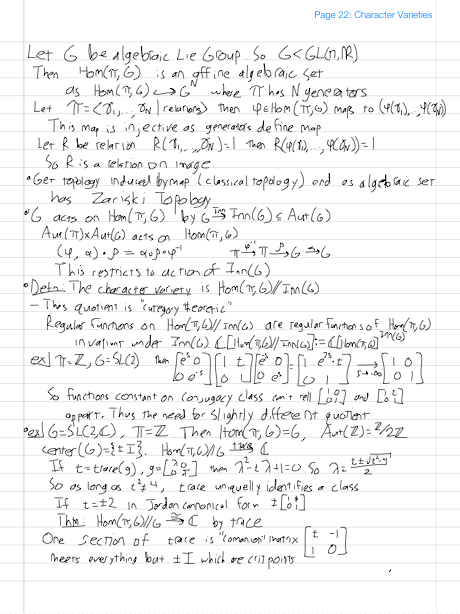 Page 22: Character Varieties
Let G be algebraic Lie Group. So G<GL(n,ℝ)
Then Hom(π,G) is an affine algebraic set
as Hom(π,G) ↪ G^N where π has N generators
Let π=<γ₁,...,γ_N | relations> then φ∈Hom(π,G) maps to (φ(γ₁),...,φ(γ_N))
This map is injective as generators define map
Let R be relation R(γ₁,...,γ_N)=1 then R(φ(γ₁),...,φ(γ_N))=1
So R is a relation on image.
• Get topology induced by map (classical topology) and as algebraic set
has Zariski Topology
• G acts on Hom(π,G) by G →^{Inn} Inn(G) ≤ Aut(G)
Aut(π)×Aut(G) acts on Hom(π,G)
(φ,α)·ρ = α∘ρ∘φ⁻¹ π →^{φ⁻¹} π →^ρ G →^α G
This restricts to action of Inn(G)
• Defn: The character variety is Hom(π,G)//Inn(G)
– This quotient is "category theoretic"
Regular functions on Hom(π,G)//Inn(G) are regular functions of Hom(π,G)
invariant under Inn(G) ℂ[Hom(π,G)//Inn(G)] := ℂ[Hom(π,G)]^{Inn(G)}
ex] π=ℤ, G=SL(2) then [e^s 0; 0 e^-s][1 t; 0 1][e^-s 0; 0 e^s] = [1 e^{2s}·t; 0 1] →_{s→-∞} [1 0; 0 1]
So functions constant on conjugacy class can't tell [1 0; 0 1] and [1 t; 0 1]
appart. Thus the need for slightly different quotient
• ex] G=SL(2,ℂ), π=ℤ Then Hom(π,G)=G, Aut(ℤ)=ℤ/2ℤ
center(G)={±I}. Hom(π,G)//G →^{trace} ℂ
If t=trace(g), g=[λ 0; 0 1/λ] then λ²-tλ+1=0. So λ = (t±√(t²-4))/2
So as long as t²≠4, trace uniquelly identifies a class
If t=±2 in Jordan canonical form ±[1 t; 0 1]
Thm: Hom(π,G)//G →^≅ ℂ by trace
One section of trace is "companion" matrix [t -1; 1 0]
meets everything but ±I which are crit points